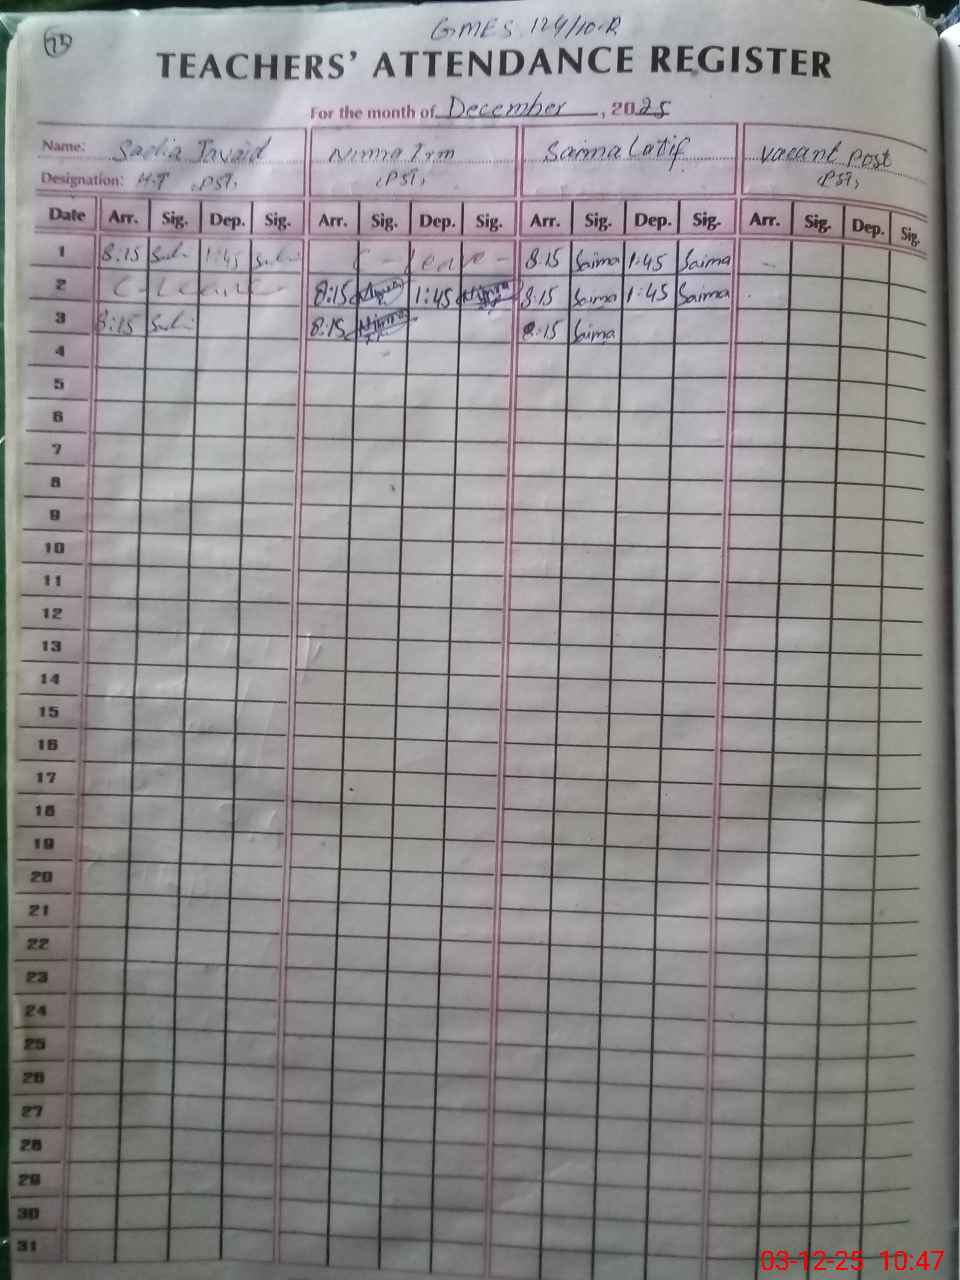 75
GMES 124/10-R
TEACHERS' ATTENDANCE REGISTER
For the month of December, 2025
Name: Sadia Javaid Nimra Saima Latif vacant post
Designation: H.T (PST) (PST) (PST)
Date Arr. Sig. Dep. Sig. Arr. Sig. Dep. Sig. Arr. Sig. Dep. Sig. Arr. Sig. Dep. Sig.
1 8:15 1:45 C-leave- 8:15 Saima 1:45 Saima
2 C-Leave- 8:15 Nimra 1:45 Nimra 8:15 Saima 1:45 Saima
3 8:15 8:15 Nimra 8:15 Saima
4
5
6
7
8
9
10
11
12
13
14
15
16
17
18
19
20
21
22
23
24
25
26
27
28
29
30
31
03-12-25 10:47